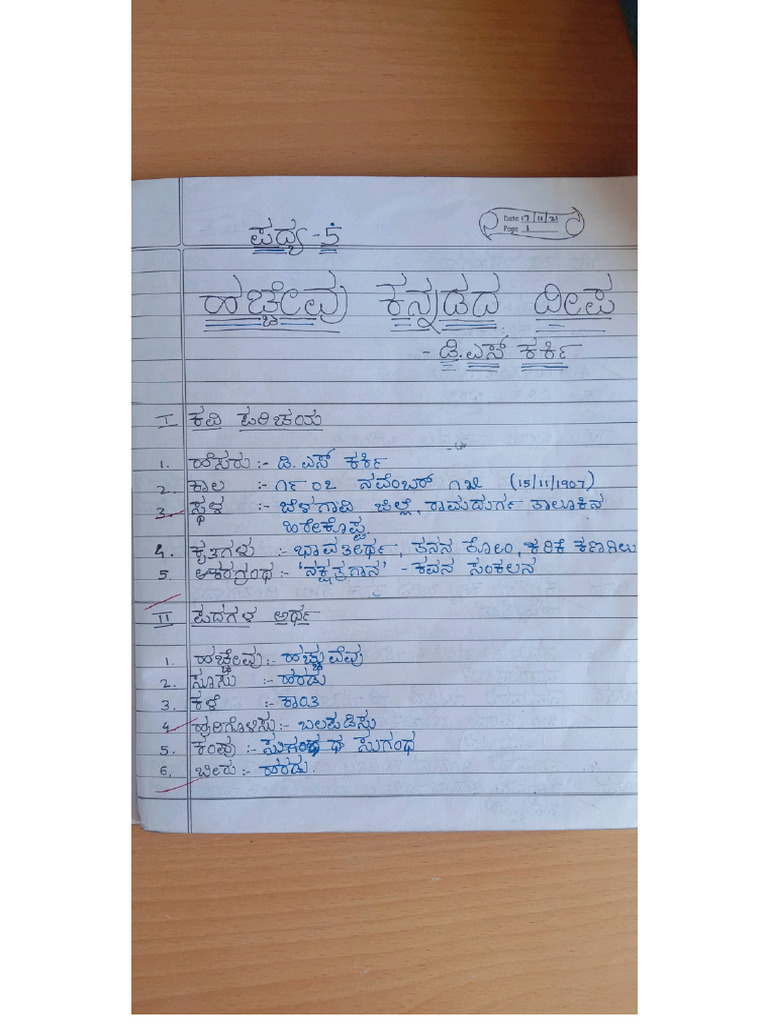 Date 17/11/21
Page 1
ಪದ್ಯ - 5
ಹಚ್ಚೇವು ಕನ್ನಡದ ದೀಪ
- ಡಿ.ಎಸ್ ಕರ್ಕಿ
I ಕವಿ ಪರಿಚಯ
1. ಹೆಸರು :- ಡಿ. ಎಸ್ ಕರ್ಕಿ
2. ಕಾಲ :- ೧೯೦೭ ನವೆಂಬರ್ ೧೫ (15/11/1907)
3. ಸ್ಥಳ :- ಬೆಳಗಾವಿ ಜಿಲ್ಲೆ, ರಾಮದುರ್ಗ ತಾಲೂಕಿನ
ಹಿರೇಕೊಪ್ಪ.
4. ಕೃತಿಗಳು :- ಭಾವತೀರ್ಥ, ತನನ ತೋಂ, ಕರಿಕೆ ಕಣಗಿಲು
5. ಆಕರಗ್ರಂಥ :- 'ನಕ್ಷತ್ರಗಾನ' - ಕವನ ಸಂಕಲನ
II ಪದಗಳ ಅರ್ಥ
1. ಹಚ್ಚೇವು :- ಹಚ್ಚುವೆವು
2. ಸೂಸು :- ಹರಡು
3. ಕಳೆ :- ಕಾಂತಿ
4. ಹುರಿಗೊಳಿಸು :- ಬಲಪಡಿಸು
5. ಕಂಪು :- ಸುಗಂಧ
6. ಬೀರು :- ಹರಡು.